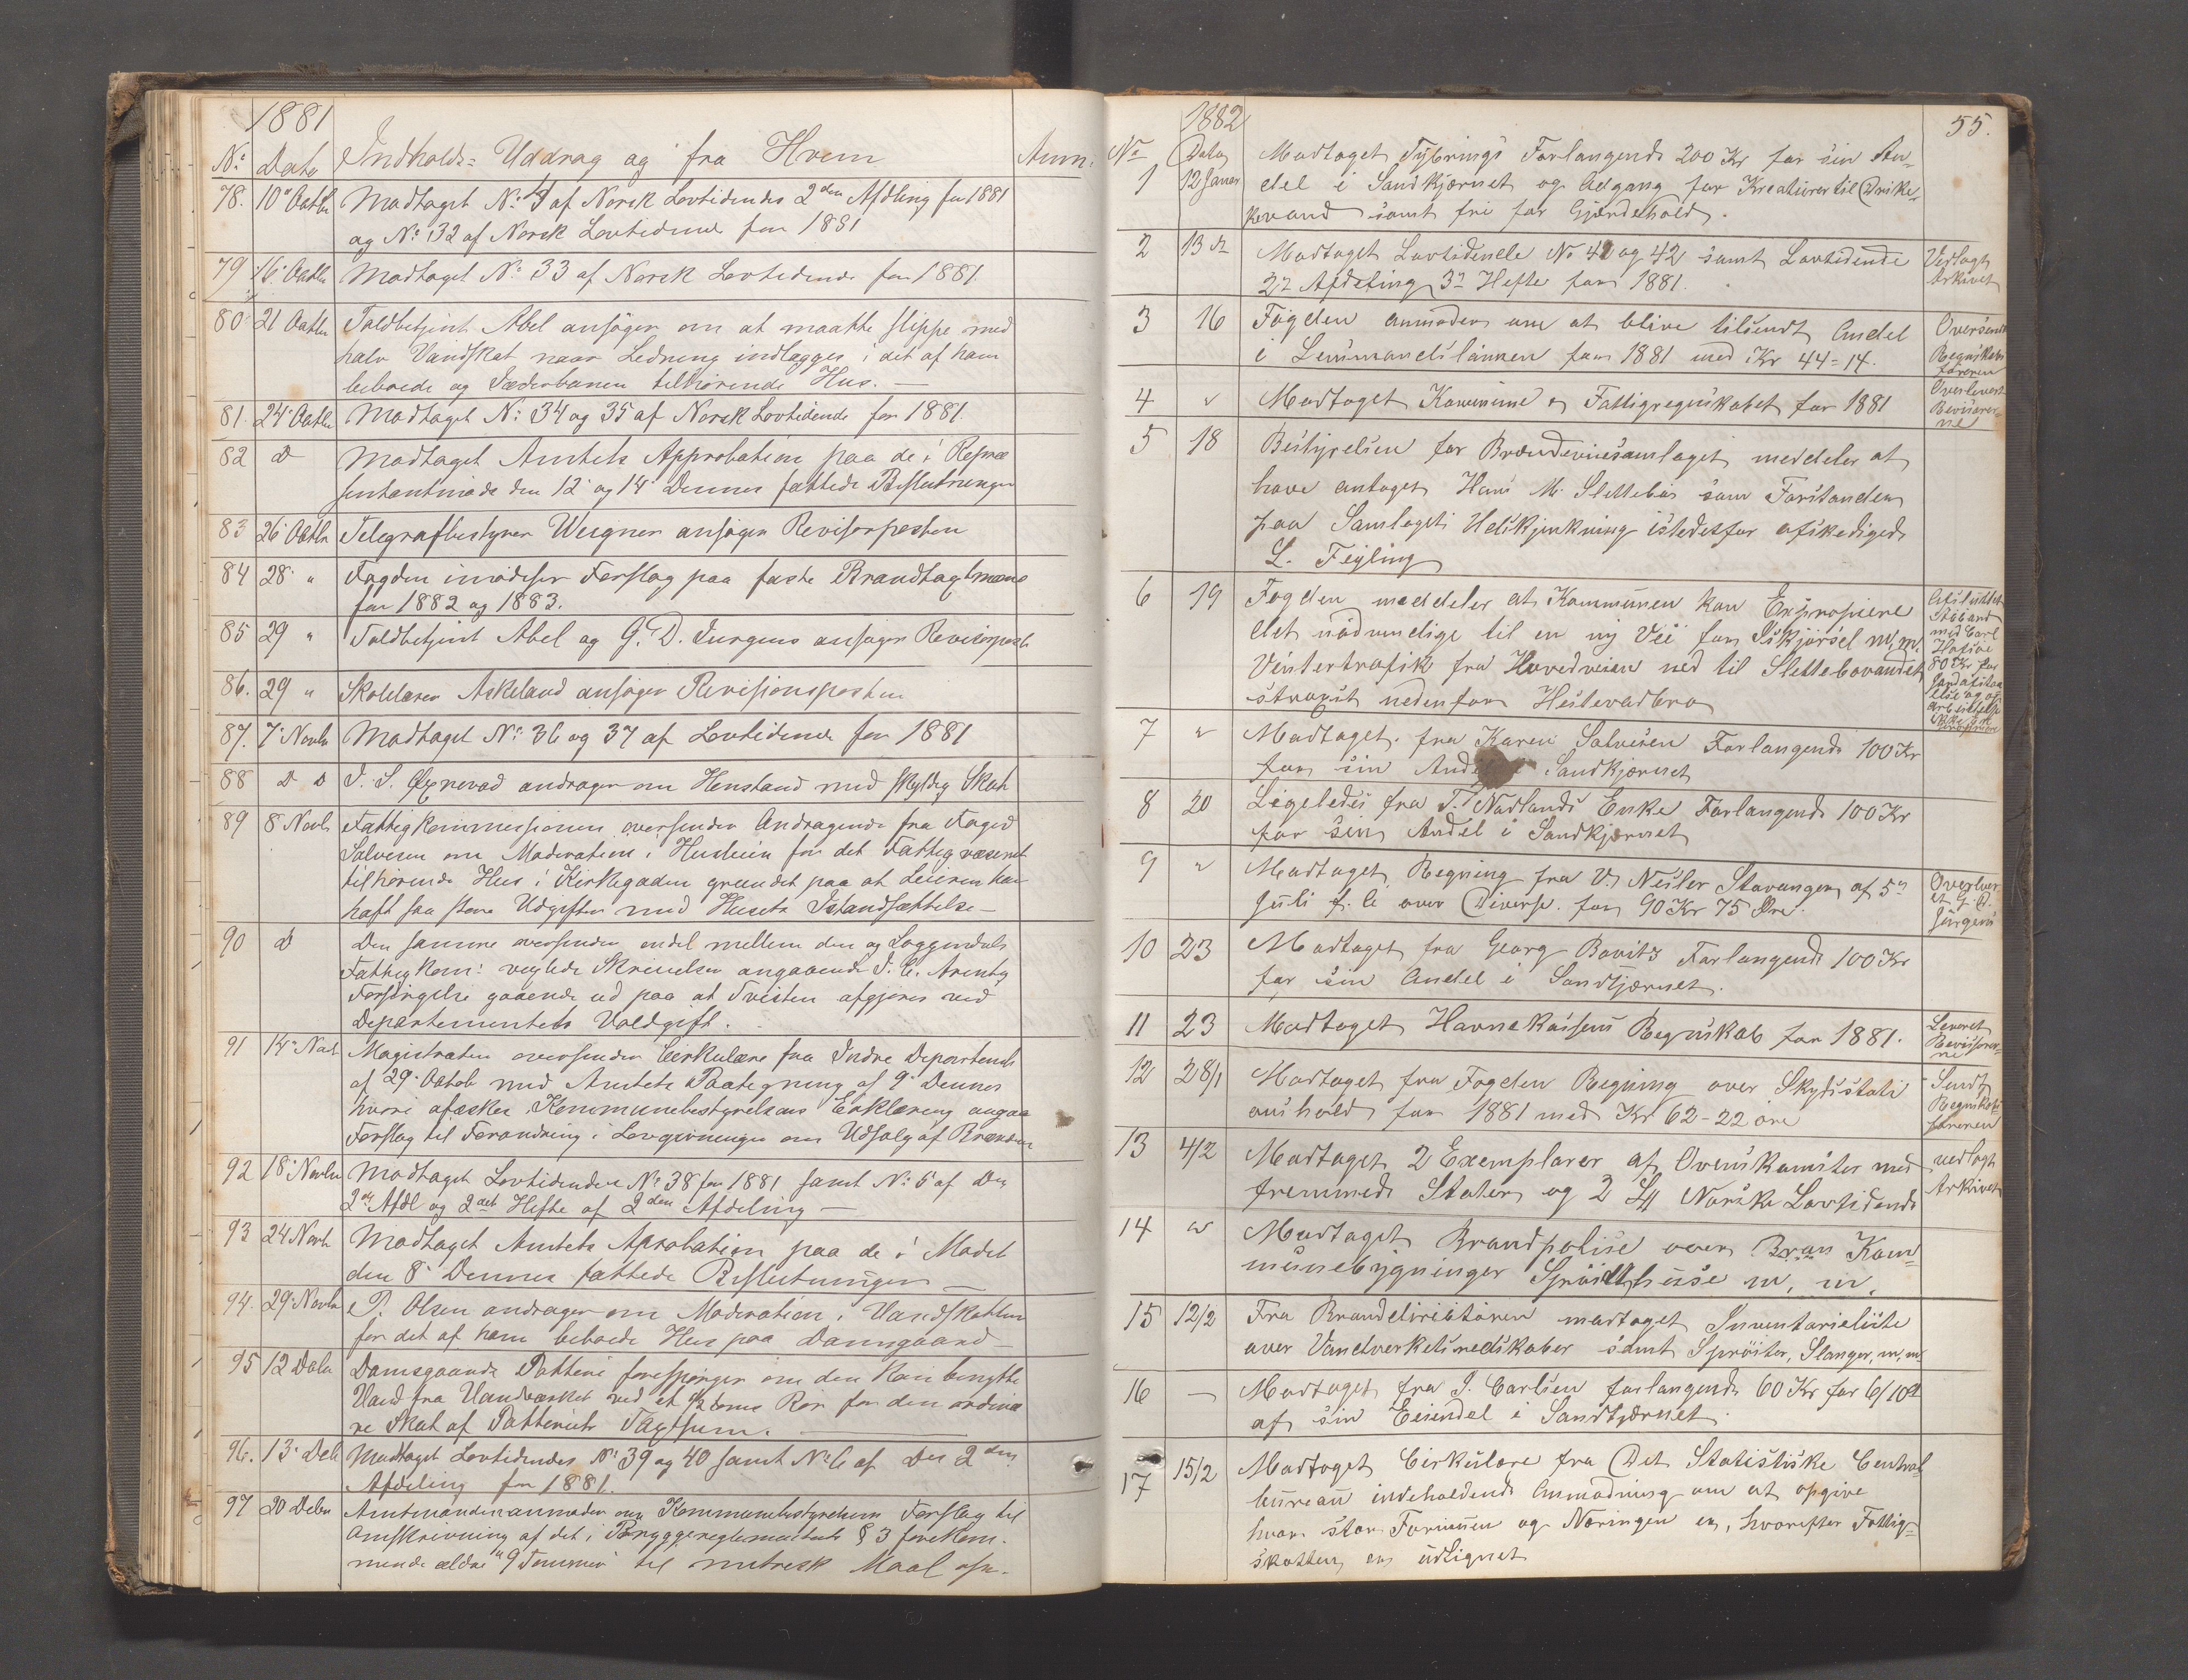 1881
No. Dato Indholds= Uddrag og fra Hvem Anm.
78. 10 Octbr Modtaget No. 4 af Norsk Lovtidendes 2den Afdling for 1881
og No. 32 af Norsk Lovtidende for 1881
79 16. Octbr Modtaget No. 33 af Norsk Lovtidende for 1881
80 21 Octbr Toldbetjent Abel ansøger om at maatte slippe med
halv Vandskat naar Ledning indlægges i det af ham
beboede og Jæderbanen tilhørende Hus. —
81. 24 Octbr Modtaget No. 34 og 35 af Norsk Lovtidende for 1881.
82 D Modtaget Amtets Approbation paa de i Repræ
sentantmøde den 12 og 14 Dennes fattede Beslutninger
83 26 Octbr Telegrafbestyrer Weigner ansøger Revisorposten
84 28 " Fogden imødeser Forslag paa faste Brandtagtmænd
for 1882 og 1883.
85 29 " Toldbetjent Abel og G. D. Jurgens ansøger Revisorpost
86. 29 " Skolelærer Askeland ansøger Revisjonsposten
87. 7 Novbr Modtaget No. 36 og 37 af Lovtidende for 1881
88 D D J. S. Øxnevad andrager om Henstand med skyldig Skat
89 8 Novb Fattigkommissionen oversender Andragende fra
Salvesen om Moderation i Husleien for det Fattigvæsenet
tilhørende Hus i Kirkegaden grundet paa at Leieren har
haft saa store Udgifter med Husets Istandsættelse —
90 D Den samme oversender endel mellem den og
Fattigkom: vexlede Skrivelser angaaende J. C.
Forsørgelse gaaende ud paa at Tvisten afgjøres ved
Departementets Voldgift.
91 14 Nov Magistraten oversender Cirkulære fra Indre Departement
af 29 Octob med Amtets Paategning af 9 Dennes
hvori afæskes Kommunebestyrelsens Erklæring angaa
Forslag til Forandring i Lovgivningen om Udsalg af
92 18 Novbr Modtaget Lovtidender No. 38 for 1881 samt No. 5 af Den
2en Afdl og 2det Hefte af 2den Afdeling —
93 24 Novb Modtaget Amtets Aprobation paa de i Mødet
den 8 Dennes fattede Beslutninger —
94. 29 Novbr P. Olsen andrager om Moderation i Vandskatten
for det af ham beboede Hus paa Damsgaard —
95 12 Debr Damsgaards Potteri forespørger om den kan benytte
Vand fra Vandværket ved et Rør for den ordinæ
re Skat af Potteriets Taxtsum. —
96. 13 Deb Modtaget Lovtidendes No. 39 og 40 samt No. 6 af Den 2den
Afdeling for 1881.
97 20 Debr Amtmanden anmoder om Kommunebestyrelsens Forslag til
Omskrivning af det i Bryggereglementets § 3 forekom-
mende ældre "9 Tommer" til metrisk Maal osv.
55.
1882
No Dato Modtaget Tybrings Forlangende 200 Kr for sin An-
1 12 Januar del i Sandkjærnet og Adgang for Kreaturer til Drike-
kevand samt fri for Gjærdehold.
2 13 Modtaget Lovtidende No 41 og 42 samt Lovtidende Vedlagt
2n Afdeling 3n Hefte for 1881. Arkivet
3 16 Fogden anmoder om at blive tilsendt Andel Oversendt
i Lensmandslønnen for 1881 med Kr 44-14. Regnskabs
føreren
4 " Modtaget Kommune & Fattigregnskabet for 1881 Overleveret
Revisorer-
ne
5 18 Bestyrelsen for Brændevinssamlaget meddeler at
have antaget Hans M. Slettebøs som Forstander
paa Samlagets Udskjenkning istedetfor afskediget
L. Feyling
6 19 Fogden meddeler at Kommunen kan Expropiere
det nødvendige til en ny Vei for Iskjørsel m, m.
Vintertrafik fra Hovedveien ned til Slettebøvandet
strax nedenfor Hestevadbro
7 " Modtaget fra Karen Salvesen Forlangende 100 Kr
for sin Andel i Sandkjærnet
8 20 Ligeledes fra T. Nødlands Enke Forlangende 100 Kr
for sin Andel i Sandkjærnet
9 " Modtaget Regning fra V. Neiler Stavanger af 5n
Juli f. A over Diverse for 90 Kr 75 Øre. Jürgens
10 23 Modtaget fra Georg Bovitz Forlangende 100 Kr
for sin Andel i Sandkjærnet.
11 23 Modtaget Havnekassens Regnskab for 1881. Leveret
Revisorer-
ne
12 28/1 Modtaget fra Fogden Regning over Skydsstati Sendt
onshold for 1881 med Kr 62-22 øre Regnskabs
føreren
13 4/2 Modtaget 2 Exemplarer af Overenskomster med vedlagt
fremmede Stater og 2 Norske Lovtidende Arkivet
14 " Modtaget Brandpolise over Kom-
munebygninger Sprøithuse m, m.
15 12/2 Fra Branddirektøren modtaget Inventarieliste
over Vandverkets redskaber samt Sprøiter, Slanger, m, m
16 — Modtaget fra J. Carlsen forlangende 60 Kr for 6/10
af sin Eiendel i Sandkjærnet.
17 15/2 Modtaget Cirkulære fra Det Statistiske Central-
bureau indeholdende Anmodning om at opgive
hvor stor Formuen og Næringen er, hvorefter Fattig-
skatten er udlignet